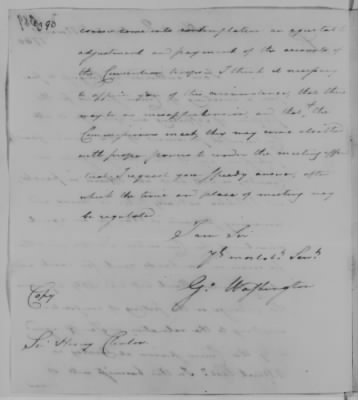 come into contemplation an equitable
adjustment and payment of the accounts of
the Convention troops I think it necessary
to apprize you of this circumstance, that there
may be no misapprehension and that if the
Commissioners meet, they may come cloathed
with proper powers to render the meeting effec
tual. I request your speedy answer, after
which the time and place of meeting may
be regulated
I am Sir
Yr most obt. Servt.
Go. Washington
Copy
Sir Henry Clinton